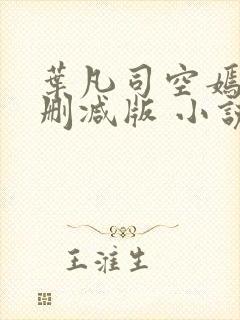 葉凡司空嫣
刪減版 小說
王淮生